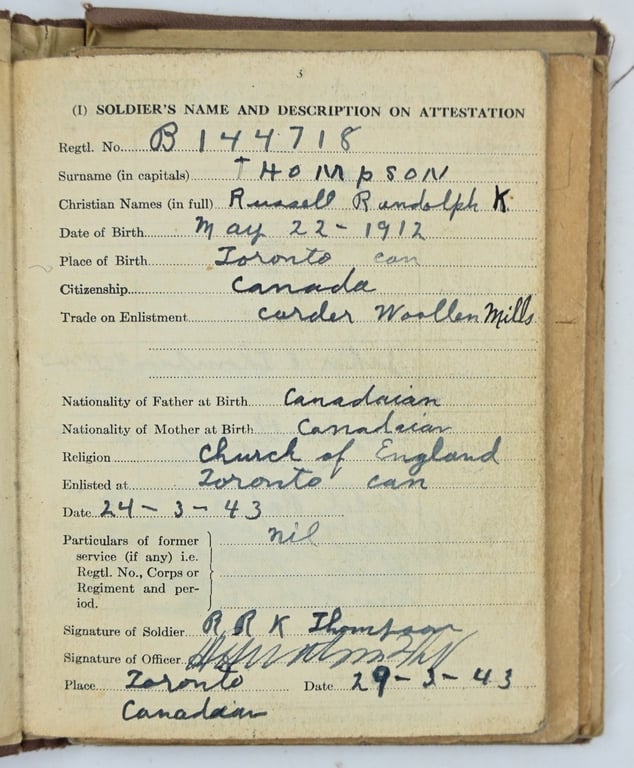 3
(I) SOLDIER'S NAME AND DESCRIPTION ON ATTESTATION
Regtl. No. B 144718
Surname (in capitals) THOMPSON
Christian Names (in full) Russell Randolph K.
Date of Birth May 22 - 1912
Place of Birth Toronto can
Citizenship Canada
Trade on Enlistment carder Woollen Mills
Nationality of Father at Birth Canadaian
Nationality of Mother at Birth Canadaian
Religion Church of England
Enlisted at Toronto can
Date 24 - 3 - 43
Particulars of former nil
service (if any) i.e.
Regtl. No., Corps or
Regiment and per-
iod.
Signature of Soldier R R K Thompson
Signature of Officer
Place Toronto Date 29 - 3 - 43
Canadaan